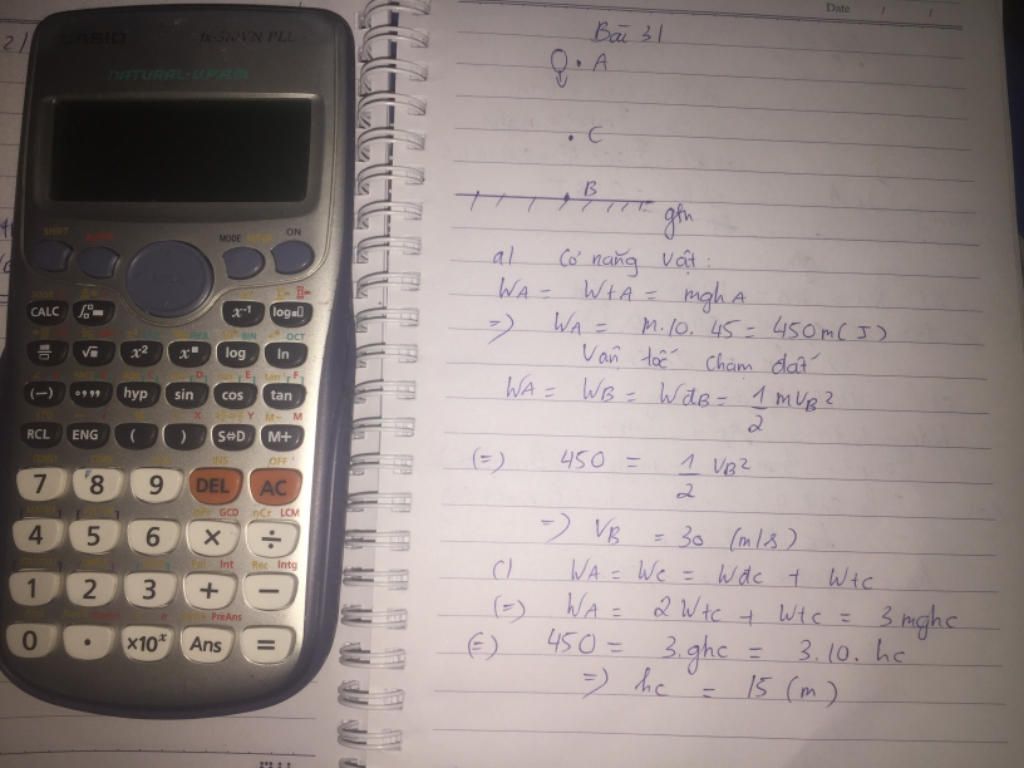 CASIO fx-570VN PLUS
NATURAL-V.P.A.M.
SHIFT
MODE
ON
CALC
x⁻¹
log
√
x²
x
log
ln
(−)
hyp
sin
cos
tan
RCL
ENG
(
)
S⇔D
M+
7 8 9 DEL AC
4 5 6 × ÷
1 2 3 + −
0 · ×10ˣ Ans =
Date / /
Bài 31
A
C
B
gtn
a) Cơ năng vật:
WA = WtA = mghA
=) WA = m.10.45 = 450m (J)
Vận tốc chạm đất
WA = WB = WđB = 1/2 mVB²
(=) 450 = 1/2 VB²
=) VB = 30 (m/s)
c) WA = Wc = Wđc + Wtc
(=) WA = 2Wtc + Wtc = 3mghc
(=) 450 = 3.ghc = 3.10.hc
=) hc = 15 (m)